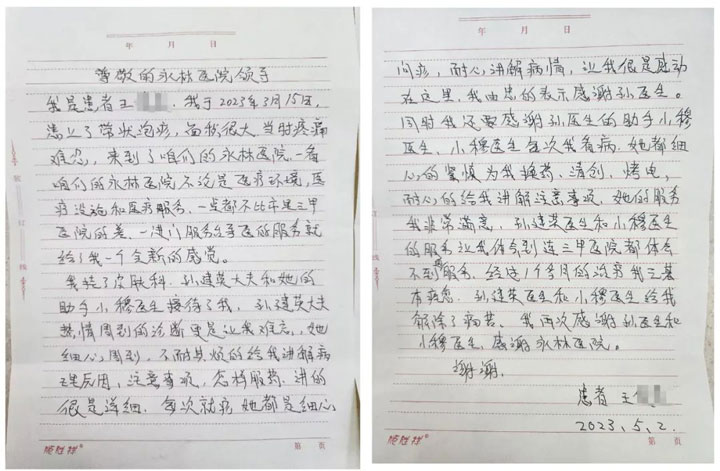 年 月 日
尊敬的永林医院领导
我是患者王 我于2023年3月15日,
患上了带状泡疹,面积很大,当时疼痛
难忍,来到了咱们的永林医院.一看
咱们的永林医院不论是医疗环境,医
疗设施和医疗服务.一点都不比市里三甲
医院的差.一进门服务台导医的服务就
给了我一个全新的感觉。
我转了皮肤科.孙建英大夫和她的
助手小穆医生接待了我,孙建英大夫
热情周到的诊断更是让我难忘,她
细心周到,不耐其烦的给我讲解病
理反应,注意事项,怎样服药.讲的
很是详细.每次就疹她都是细心
第 页
年 月 日
问疹,耐心讲解病情,让我很是感动
在这里.我由忠的表示感谢孙医生。
同时我还要感谢孙医生的助手小穆
医生.小穆医生每次我看病.她都细
心的 为我换药.清创,烤电,
耐心的给我讲解注意事项.她的服务
我非常满意,孙建英医生和小穆医生
的服务让我体会到连三甲医院都体会
不到的服务.经过1个多月的治疗我已基
本痊愈.孙建英医生和小穆医生给我
解除了病苦.我再次感谢孙医生和
小穆医生.感谢永林医院。
谢谢.
患者 王
2023.5.2.
第 页